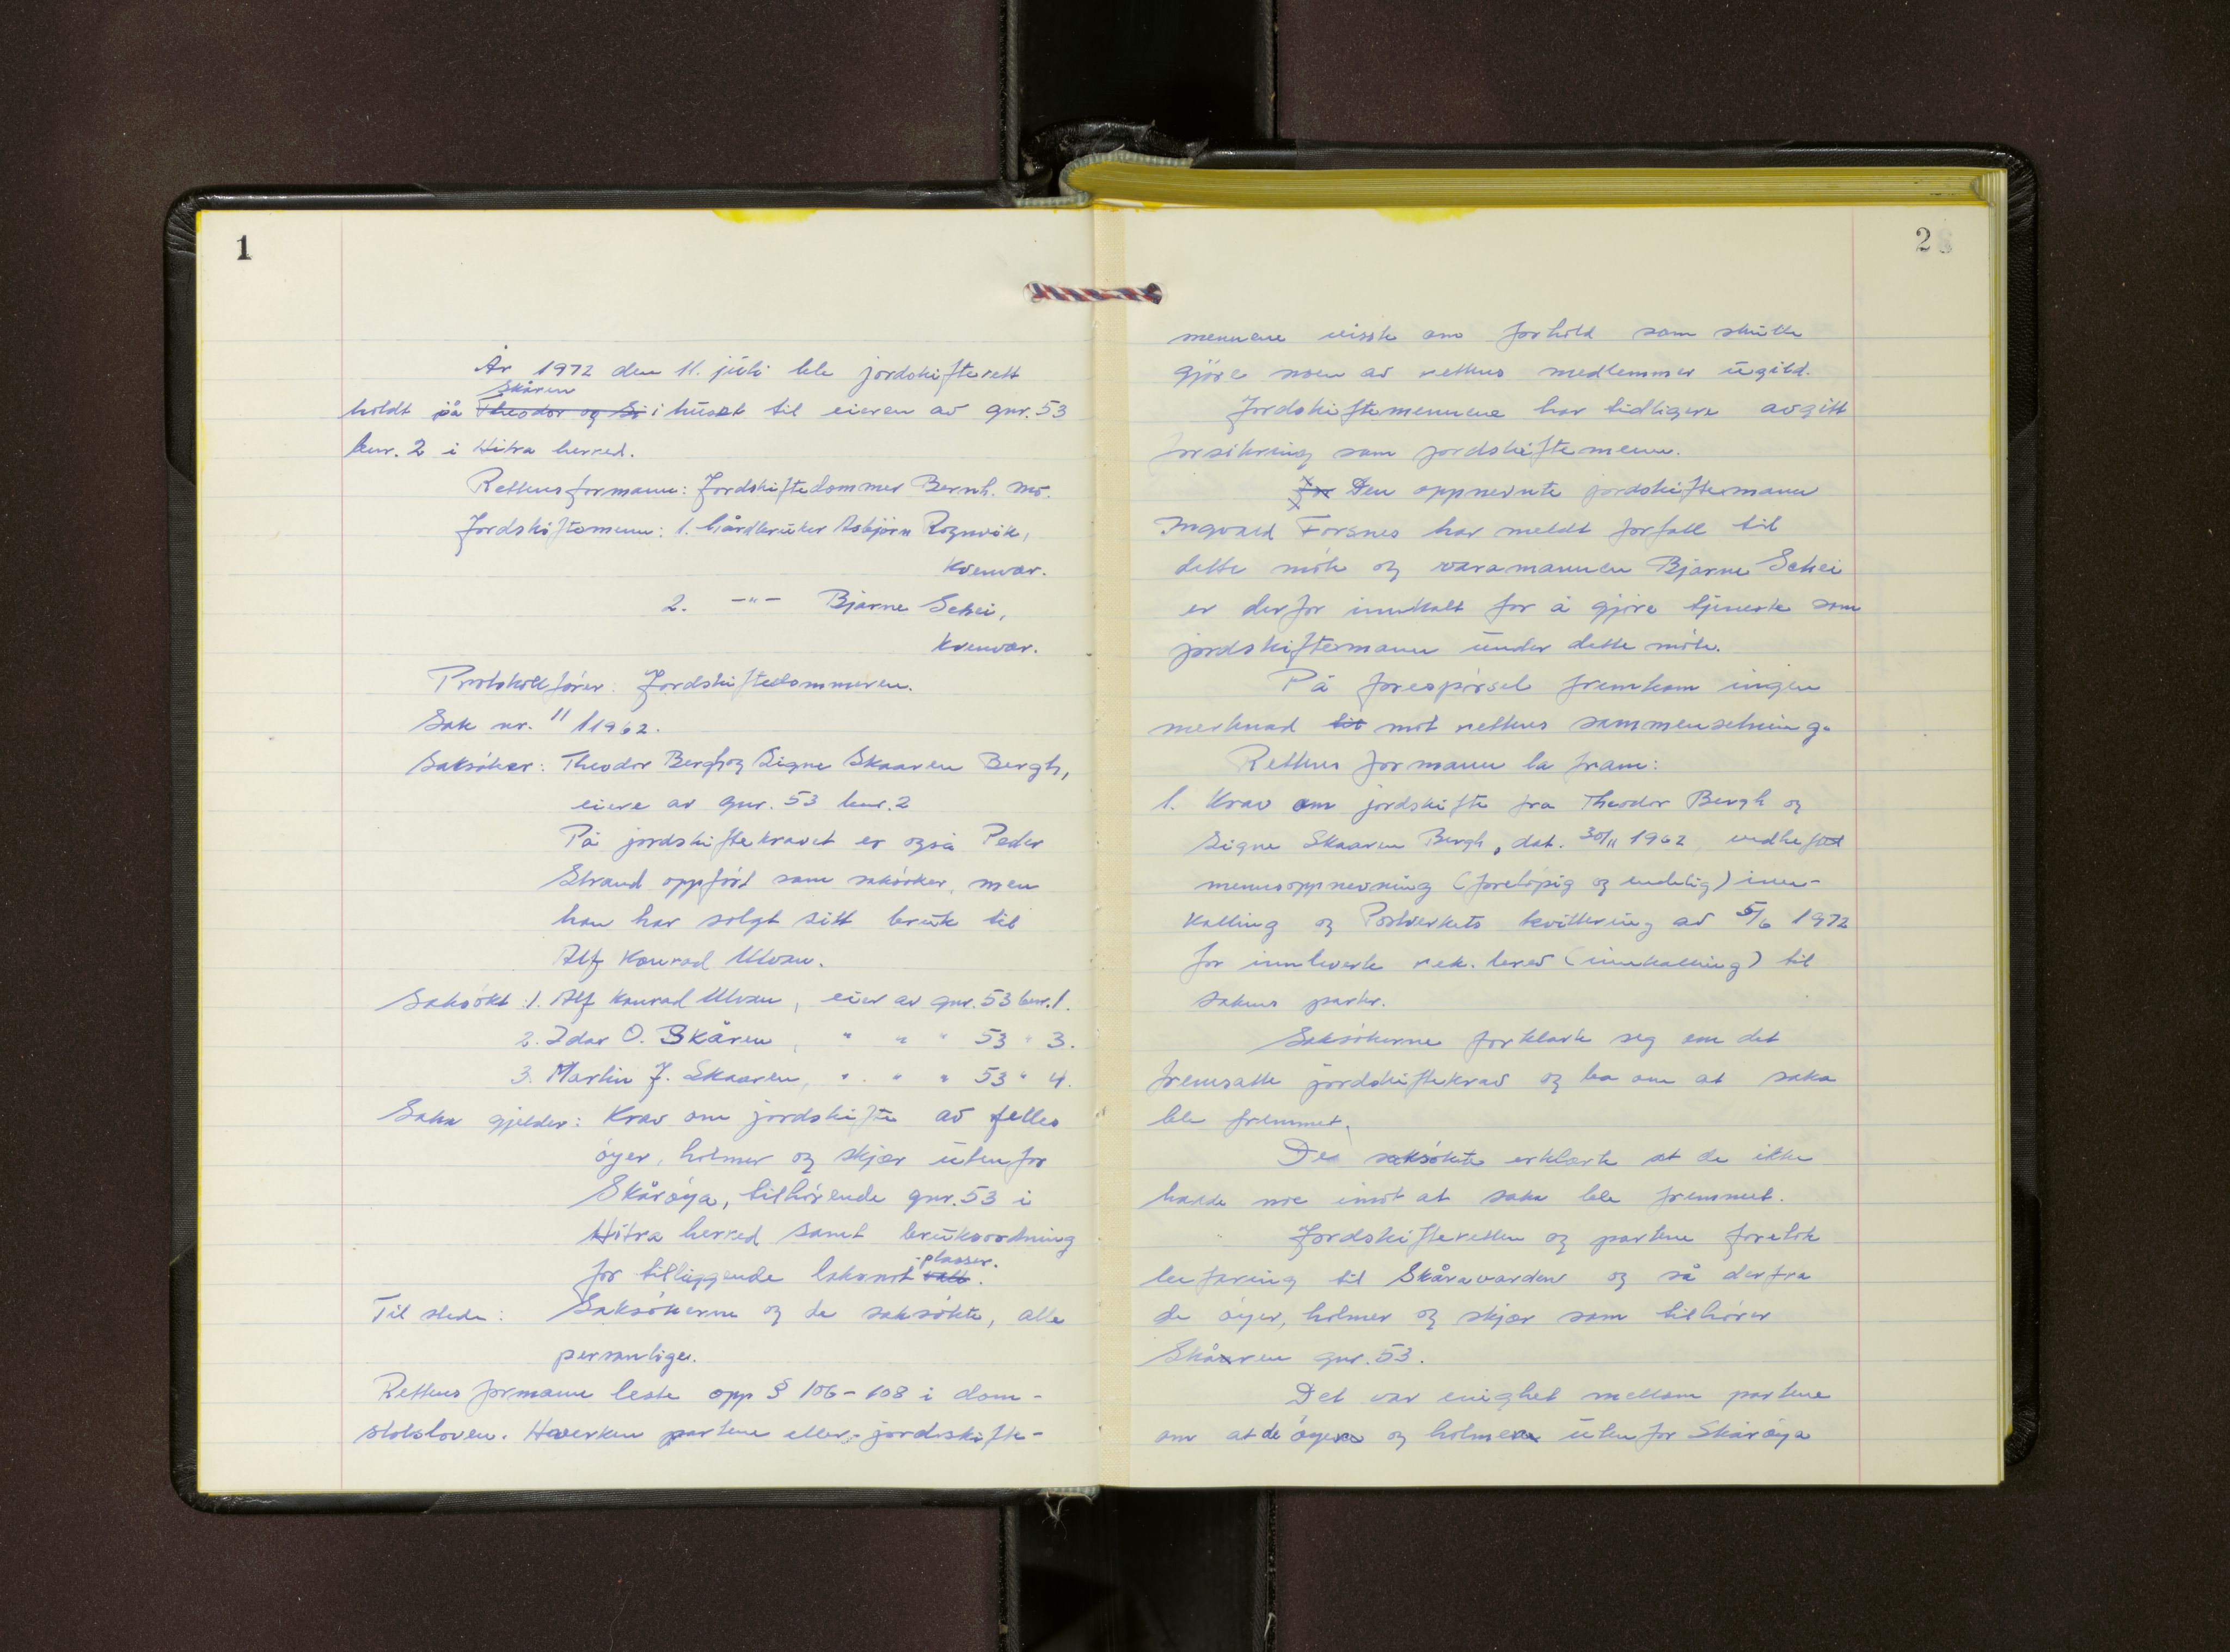 1
År 1972 den 11. juli ble jordskifterett
Skåren
holdt på Theodor og Si i huset til eieren av gnr. 53
bnr. 2 i Hitra herred.
Rettens formann: Jordskiftedommer Bernh. Mo.
Jordskiftemenn: 1. Gårdbruker Asbjørn Rognvik,
Kvenvær.
2. -"- Bjarne Schei,
Kvenvær.
Protokollfører: Jordskiftedommeren.
Sak nr. 11/1962.
Saksøker: Theodor Bergh og Signe Skaaren Bergh,
eiere av gnr. 53 bnr. 2
På jordskiftekravet er også Peder
Strand oppført som saksøker, men
han har solgt sitt bruk til
Alf Konrad Ulvan.
Saksøkt: 1. Alf Konrad Ulvan, eier av gnr. 53 bnr. 1.
2. Idar O. Skåren, " " " 53 " 3.
3. Martin J. Skaaren, " " " 53 " 4.
Saka gjelder: Krav om jordskifte av felles
øyer, holmer og skjær utenfor
Skårøya, tilhørende gnr. 53 i
Hitra herred samt bruksordning
-plasser.
for tilliggende laksnot vald.
Til stede: Saksøkerne og de saksøkte, alle
personlige.
Rettens formann leste opp § 106-108 i dom-
stolsloven. Hverken partene eller jordskifte-
2
mennene visste om forhold som skulle
gjøre noen av rettens medlemmer ugild.
Jordskiftemennene har tidligere avgitt
forsikring som jordskiftemenn.
For Den oppnevnte jordskiftemann
Ingvald Forsnes har meldt forfall til
dette møte og varamannen Bjarne Schei
er derfor innkalt for å gjøre tjeneste som
jordskiftemann under dette møte.
På forespørsel fremkom ingen
merknad til mot rettens sammensetning.
Rettens formann la fram:
1. Krav om jordskifte fra Theodor Bergh og
Signe Skaaren Bergh, dat. 30/11 1962, vedheftet
mennsoppnevning (foreløpig og endelig) inn-
kalling og Postverkets kvittering av 5/6 1972
for innleverte rek. brev (innkalling) til
sakens parter.
Saksøkerne forklarte seg om det
fremsatte jordskiftekrav og ba om at saka
ble fremmet.
De saksøkte erklærte at de ikke
hadde noe imot at saka ble fremmet.
Jordskifteretten og partene foretok
befaring til Skåravarden og så derfra
de øyer, holmer og skjær som tilhører
Skåren gnr. 53.
Det var enighet mellom partene
om at de øyer og holmer utenfor Skårøya